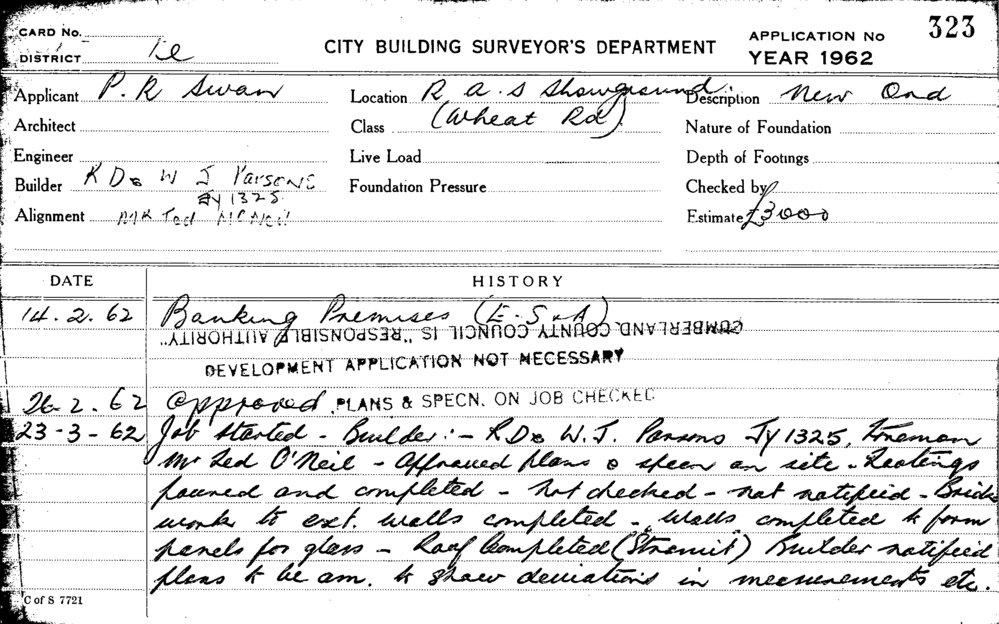 CARD No.
DISTRICT
CITY BUILDING SURVEYOR'S DEPARTMENT
APPLICATION No 323
YEAR 1962
Applicant P. R Swan
Location R A. S Showground
(Wheat Rd)
Description New Ond
Architect
Class
Nature of Foundation
Engineer
Live Load
Depth of Footings
Builder R D & W J Parsons
JY 1325
Foundation Pressure
Checked by
Alignment Mr Ted
Estimate £3000
DATE HISTORY
14. 2. 62 Banking Premises (E. S & A)
CUMBERLAND COUNTY COUNCIL IS "RESPONSIBLE AUTHORITY"
DEVELOPMENT APPLICATION NOT NECESSARY
26-2. 62 Approved PLANS & SPECN. ON JOB CHECKED
23-3-62 Job started - Builder:- R D & W. J. Parsons JY 1325, Foreman
Mr Ted O'Neil - Approved plans & specn on site - Footings
poured and completed - not checked - not notified - Brick
work to ext. walls completed - Walls completed to form
panels for glass - Roof Completed (Stramit) Builder notified
plans to be am. to show deviations in measurements etc.
C of S 7721